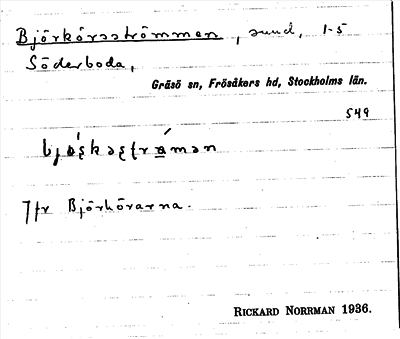 Björkörsströmmen, sund, 1-5
Söderboda,
Gräsö sn, Frösåkers hd, Stockholms län.
549
Jfr Björkörarna.
RICKARD NORRMAN 1936.